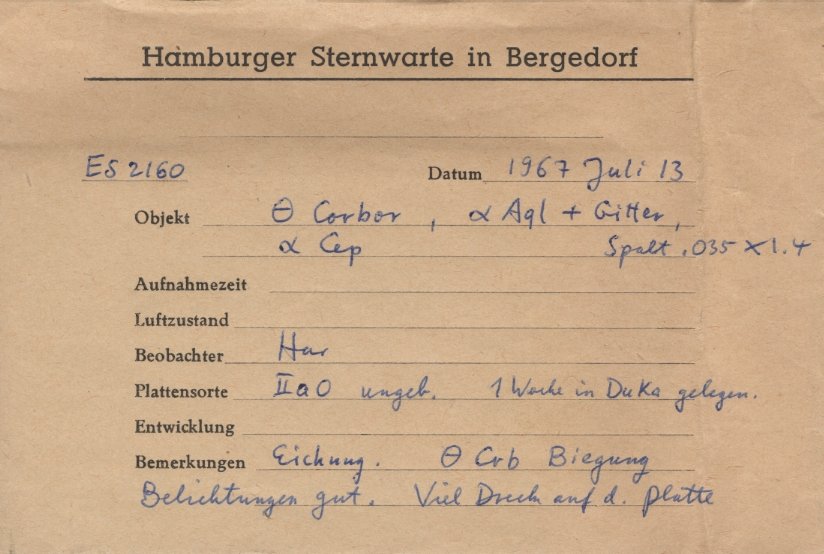 Hamburger Sternwarte in Bergedorf
ES 2160 Datum 1967 Juli 13
Objekt Θ Corbor, α Aql + Gitter,
α Cep Spalt .035 × 1.4
Aufnahmezeit
Luftzustand
Beobachter Har
Plattensorte IIaO ungeb. 1 Woche in DuKa gelegen.
Entwicklung
Bemerkungen Eichung. Θ Crb Biegung
Belichtungen gut. Viel Dreck auf d. Platte